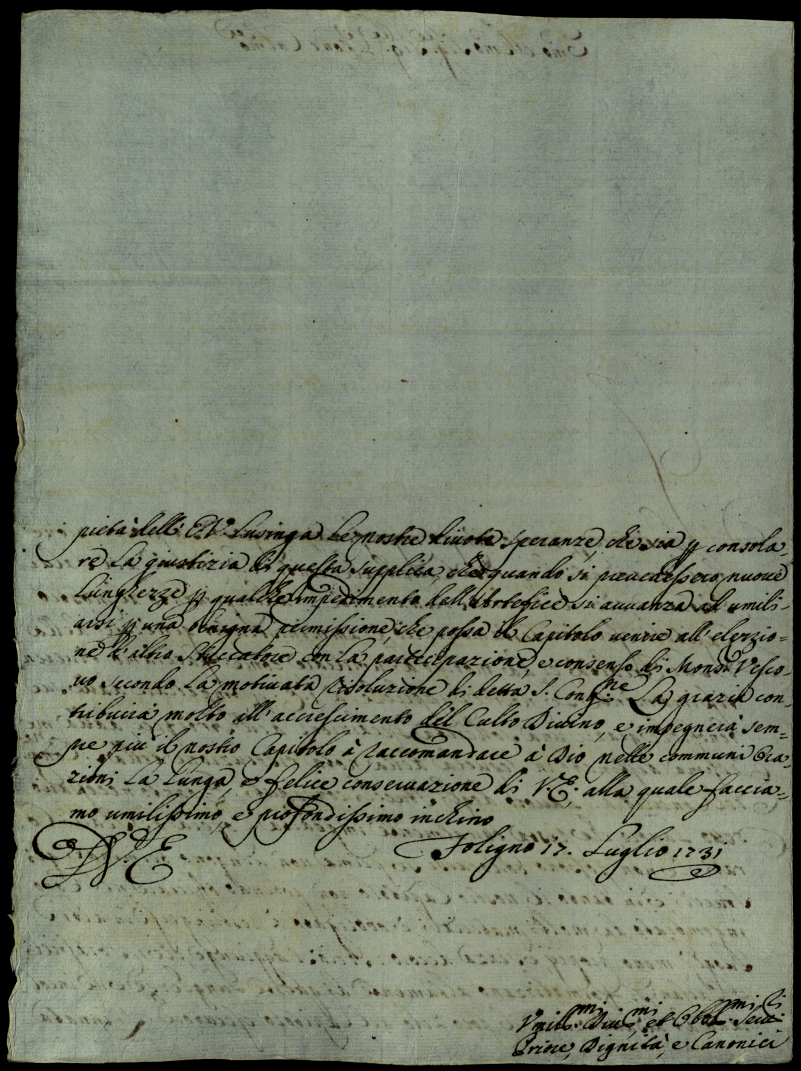 pietà dell' E.V. Lusinga le nostre divote speranze, che sia p consola=
re La giustizia di questa supplica, che quando si prevedessero nuove
Lunghezze p qualche impedimento dell'Artefice si avvanza ad umili=
arsi p una benigna permissione, che possa il Capitolo venire all' elezzio=
ne d'altro Stuccatore con La partecipazione, e consenso di Monsr Vesco=
vo secondo La motivata risoluzione di detta S. Congne. La grazia con=
tribuirà molto all' accrescimento del Culto Divino, e impegnerà sem=
pre più il nostro Capitolo à raccomandare à Dio nelle communi Ora=
zioni La Lunga, e felice conservazione di V.E., alla quale faccia=
mo umilissimo, e profondissimo inchino
D V. E
Foligno 17. Luglio 1731
Umilmi Divmi, et Obblmi Servi
Priore, Dignità, e Canonici